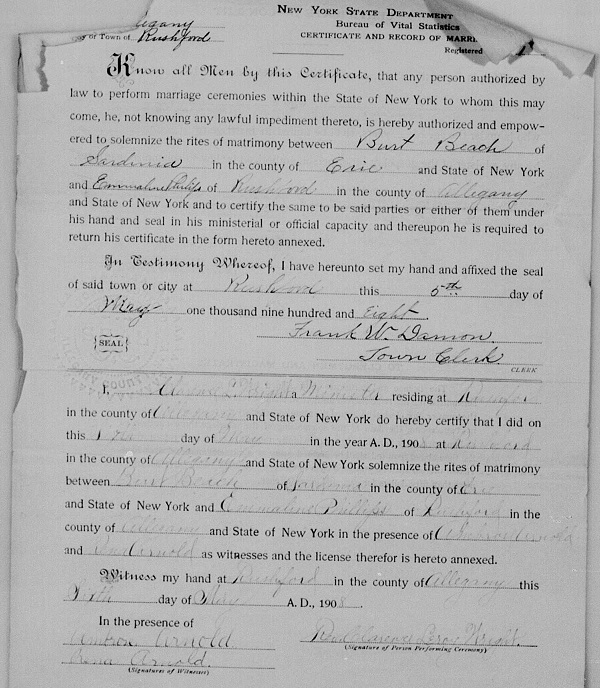 NEW YORK STATE DEPARTMENT
Bureau of Vital Statistics
CERTIFICATE AND RECORD OF MARRI
Registered
or Town of Rushford
Know all Men by this Certificate, that any person authorized by
law to perform marriage ceremonies within the State of New York to whom this may
come, he, not knowing any lawful impediment thereto, is hereby authorized and empow-
ered to solemnize the rites of matrimony between Burt Beach of
Sardinia in the county of Erie and State of New York
and Emmaline Philips of Rushford in the county of Allegany
and State of New York and to certify the same to be said parties or either of them under
his hand and seal in his ministerial or official capacity and thereupon he is required to
return his certificate in the form hereto annexed.
In Testimony Whereof, I have hereunto set my hand and affixed the seal
of said town or city at Rushford this 5th day of
May one thousand nine hundred and Eight.
{SEAL} Frank W. Damon.
Town Clerk.
CLERK
I, a Minister residing at
in the county of Allegany and State of New York do hereby certify that I did on
this day of May in the year A. D., 1908 at Rushford
in the county of Allegany and State of New York solemnize the rites of matrimony
between Burt Beach of Sardinia in the county of Erie
and State of New York and Emmaline Philips of Rushford in the
county of Allegany and State of New York in the presence of Arnold
and Arnold as witnesses and the license therefor is hereto annexed.
Witness my hand at Rushford in the county of Allegany this
day of May A. D., 1908.
In the presence of
Arnold
Arnold. Wright.
(Signatures of Witnesses) (Signature of Person Performing Ceremony)